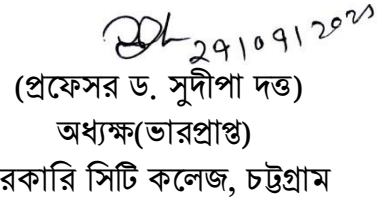 (প্রফেসর ড. সুদীপা দত্ত)
অধ্যক্ষ(ভারপ্রাপ্ত)
রকারি সিটি কলেজ, চট্টগ্রাম